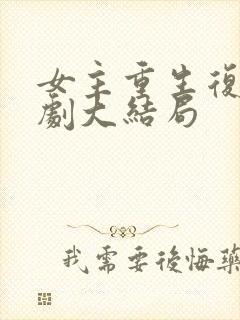 女主重生復
劇大結局
我需要後悔藥